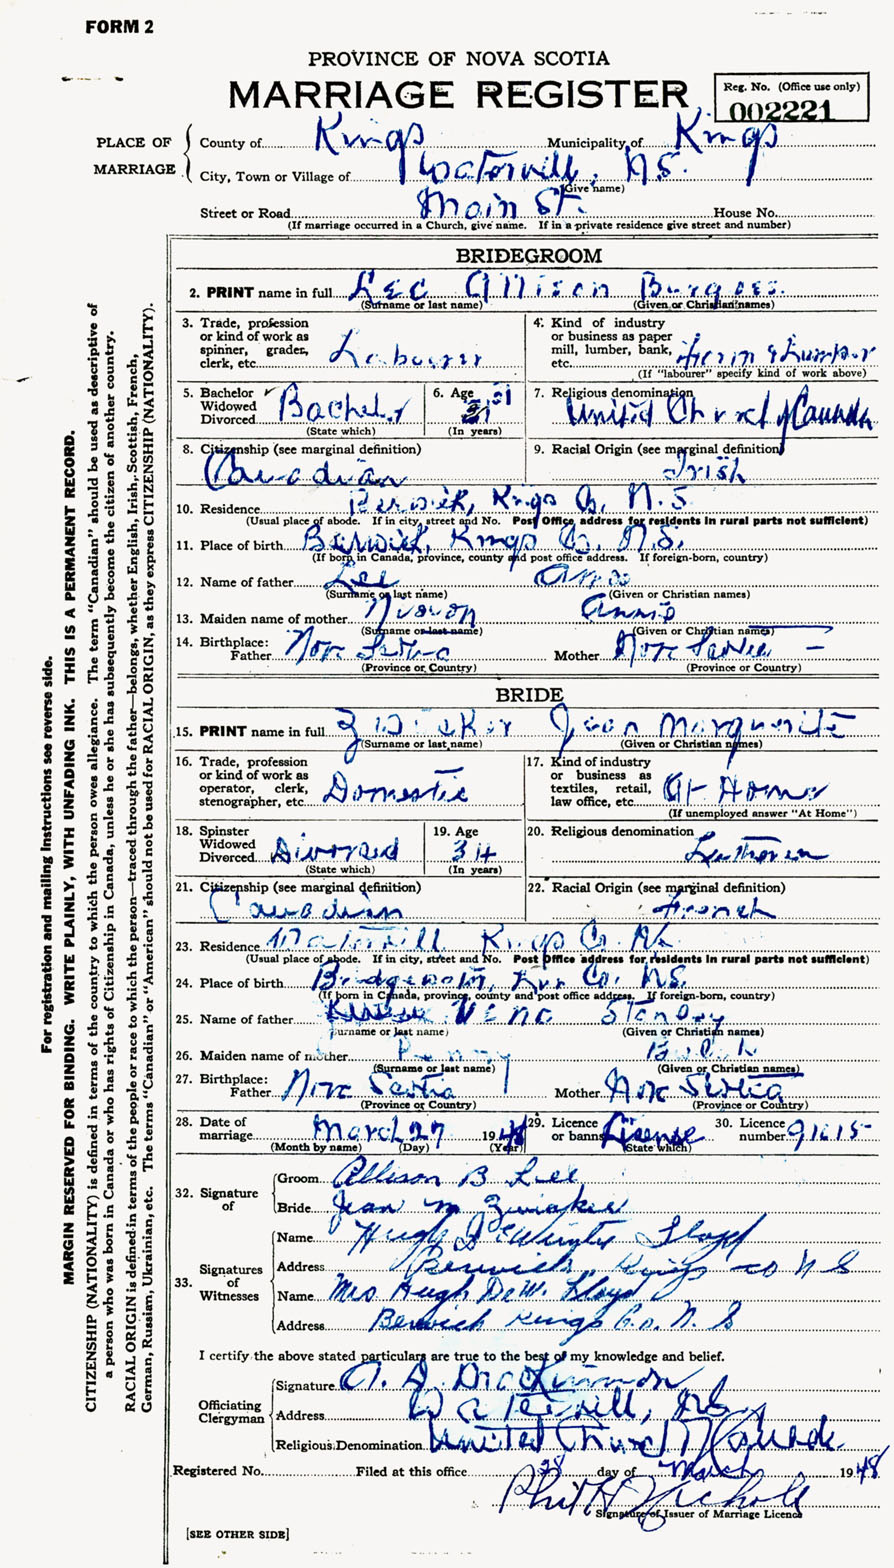 FORM 2
PROVINCE OF NOVA SCOTIA
MARRIAGE REGISTER
Reg. No. (Office use only)
002221
PLACE OF MARRIAGE
County of Kings Municipality of Kings
City, Town or Village of Watervill, N.S.
(Give name)
Street or Road Main St. House No.
(If marriage occurred in a Church, give name. If in a private residence give street and number)
BRIDEGROOM
2. PRINT name in full Lee Allison Burgess
(Surname or last name) (Given or Christian names)
3. Trade, profession or kind of work as spinner, grader, clerk, etc. Labourer
4. Kind of industry or business as paper mill, lumber, bank, etc. Farm & Lumber
(If "labourer" specify kind of work above)
5. Bachelor Widowed Divorced Bachelor
(State which)
6. Age
(In years)
7. Religious denomination United Church of Canada
8. Citizenship (see marginal definition) Canadian
9. Racial Origin (see marginal definition) Irish
10. Residence Berwick, Kings Co, N.S
(Usual place of abode. If in city, street and No. Post Office address for residents in rural parts not sufficient)
11. Place of birth Berwick, Kings Co. N.S.
(If born in Canada, province, county and post office address. If foreign-born, country)
12. Name of father Lee
(Surname or last name) (Given or Christian names)
13. Maiden name of mother Annie
(Surname or last name) (Given or Christian names)
14. Birthplace: Father Nova Scotia Mother Nova Scotia
(Province or Country) (Province or Country)
BRIDE
15. PRINT name in full Zwicker Jean Marguerite
(Surname or last name) (Given or Christian names)
16. Trade, profession or kind of work as operator, clerk, stenographer, etc. Domestic
17. Kind of industry or business as textiles, retail, law office, etc. At Home
(If unemployed answer "At Home")
18. Spinster Widowed Divorced Divorced
(State which)
19. Age 34
(In years)
20. Religious denomination
21. Citizenship (see marginal definition) Canadian
22. Racial Origin (see marginal definition) French
23. Residence Watervill Kings Co. N.S.
(Usual place of abode. If in city, street and No. Post Office address for residents in rural parts not sufficient)
24. Place of birth Co. N.S.
(If born in Canada, province, county and post office address. If foreign-born, country)
25. Name of father
(Surname or last name) (Given or Christian names)
26. Maiden name of mother
(Surname or last name) (Given or Christian names)
27. Birthplace: Father Nova Scotia Mother Nova Scotia
(Province or Country) (Province or Country)
28. Date of marriage March 27 1948
(Month by name) (Day) (Year)
29. Licence or banns License
(State which)
30. Licence number 91615
32. Signature of
Groom Allison B Lee
Bride Jean M Zwicker
33. Signatures of Witnesses
Name Hugh DeWinter Lloyd
Address Berwick, Kings co N S
Name Mrs Hugh DeW. Lloyd
Address Berwick Kings Co. N. S
I certify the above stated particulars are true to the best of my knowledge and belief.
Officiating Clergyman
Signature
Address Watervill, N.S.
Religious Denomination United Church of Canada
Registered No. Filed at this office 28 day of March 1948
Signature of Issuer of Marriage Licence
[SEE OTHER SIDE]
For registration and mailing instructions see reverse side.
MARGIN RESERVED FOR BINDING. WRITE PLAINLY, WITH UNFADING INK. THIS IS A PERMANENT RECORD.
CITIZENSHIP (NATIONALITY) is defined in terms of the country to which the person owes allegiance. The term "Canadian" should be used as descriptive of
a person who was born in Canada or who has rights of Citizenship in Canada, unless he or she has subsequently become the citizen of another country.
RACIAL ORIGIN is defined in terms of the people or race to which the person—traced through the father—belongs, whether English, Irish, Scottish, French,
German, Russian, Ukrainian, etc. The terms "Canadian" or "American" should not be used for RACIAL ORIGIN, as they express CITIZENSHIP (NATIONALITY).